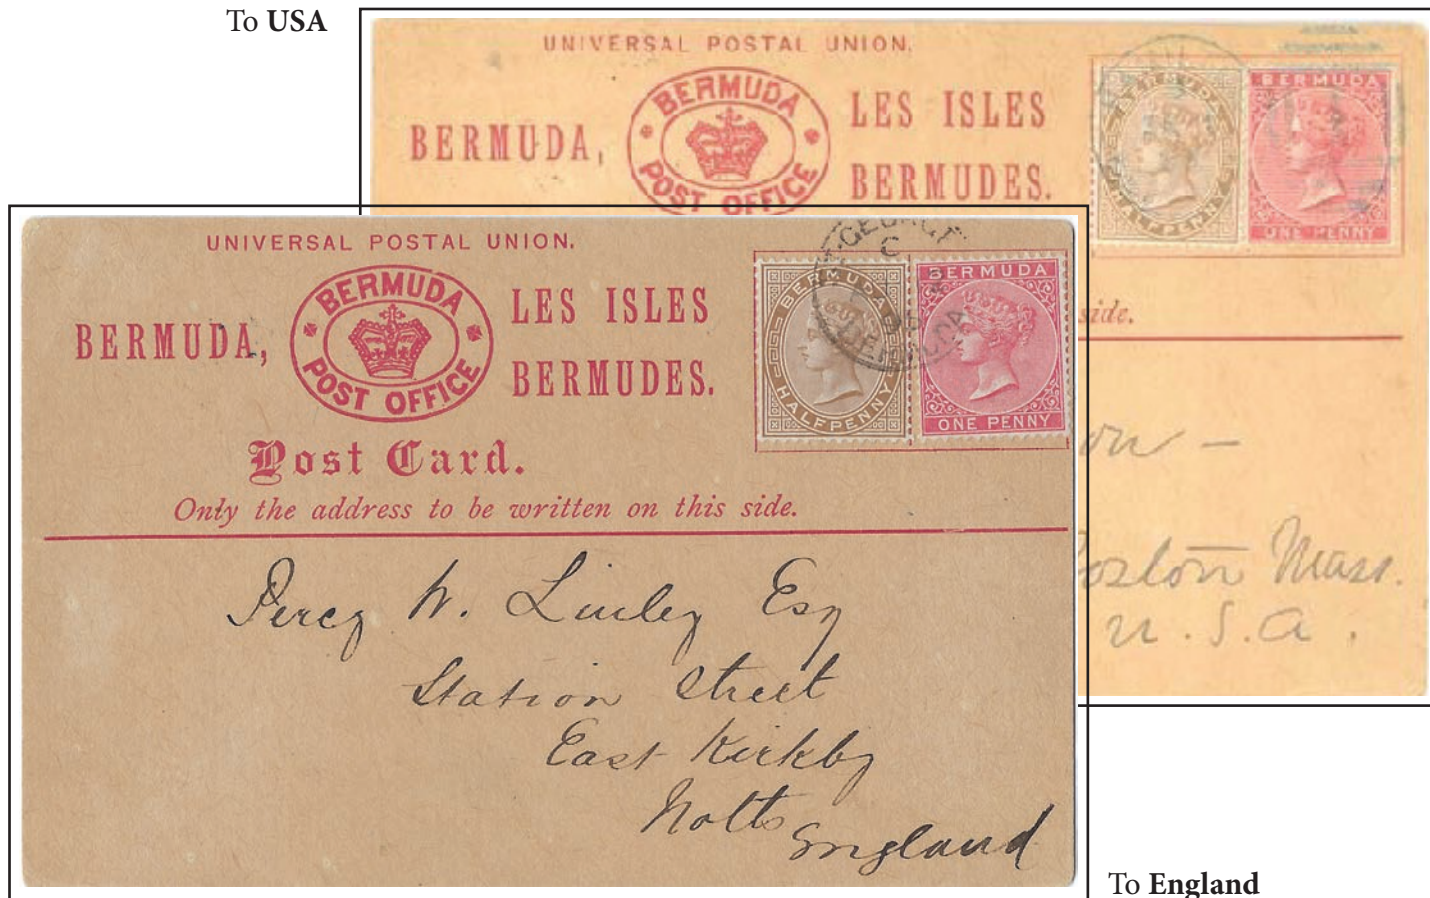 To USA
UNIVERSAL POSTAL UNION.
BERMUDA,
BERMUDA
POST OFFICE
LES ISLES
BERMUDES.
BERMUDA
HALFPENNY
BERMUDA
ONE PENNY
side.
Boston Mass.
U.S.A.
UNIVERSAL POSTAL UNION.
BERMUDA,
BERMUDA
POST OFFICE
LES ISLES
BERMUDES.
BERMUDA
HALFPENNY
BERMUDA
ONE PENNY
Post Card.
Only the address to be written on this side.
Percy W. Linley Esq
Station Street
East Kirkby
Notts
England
To England